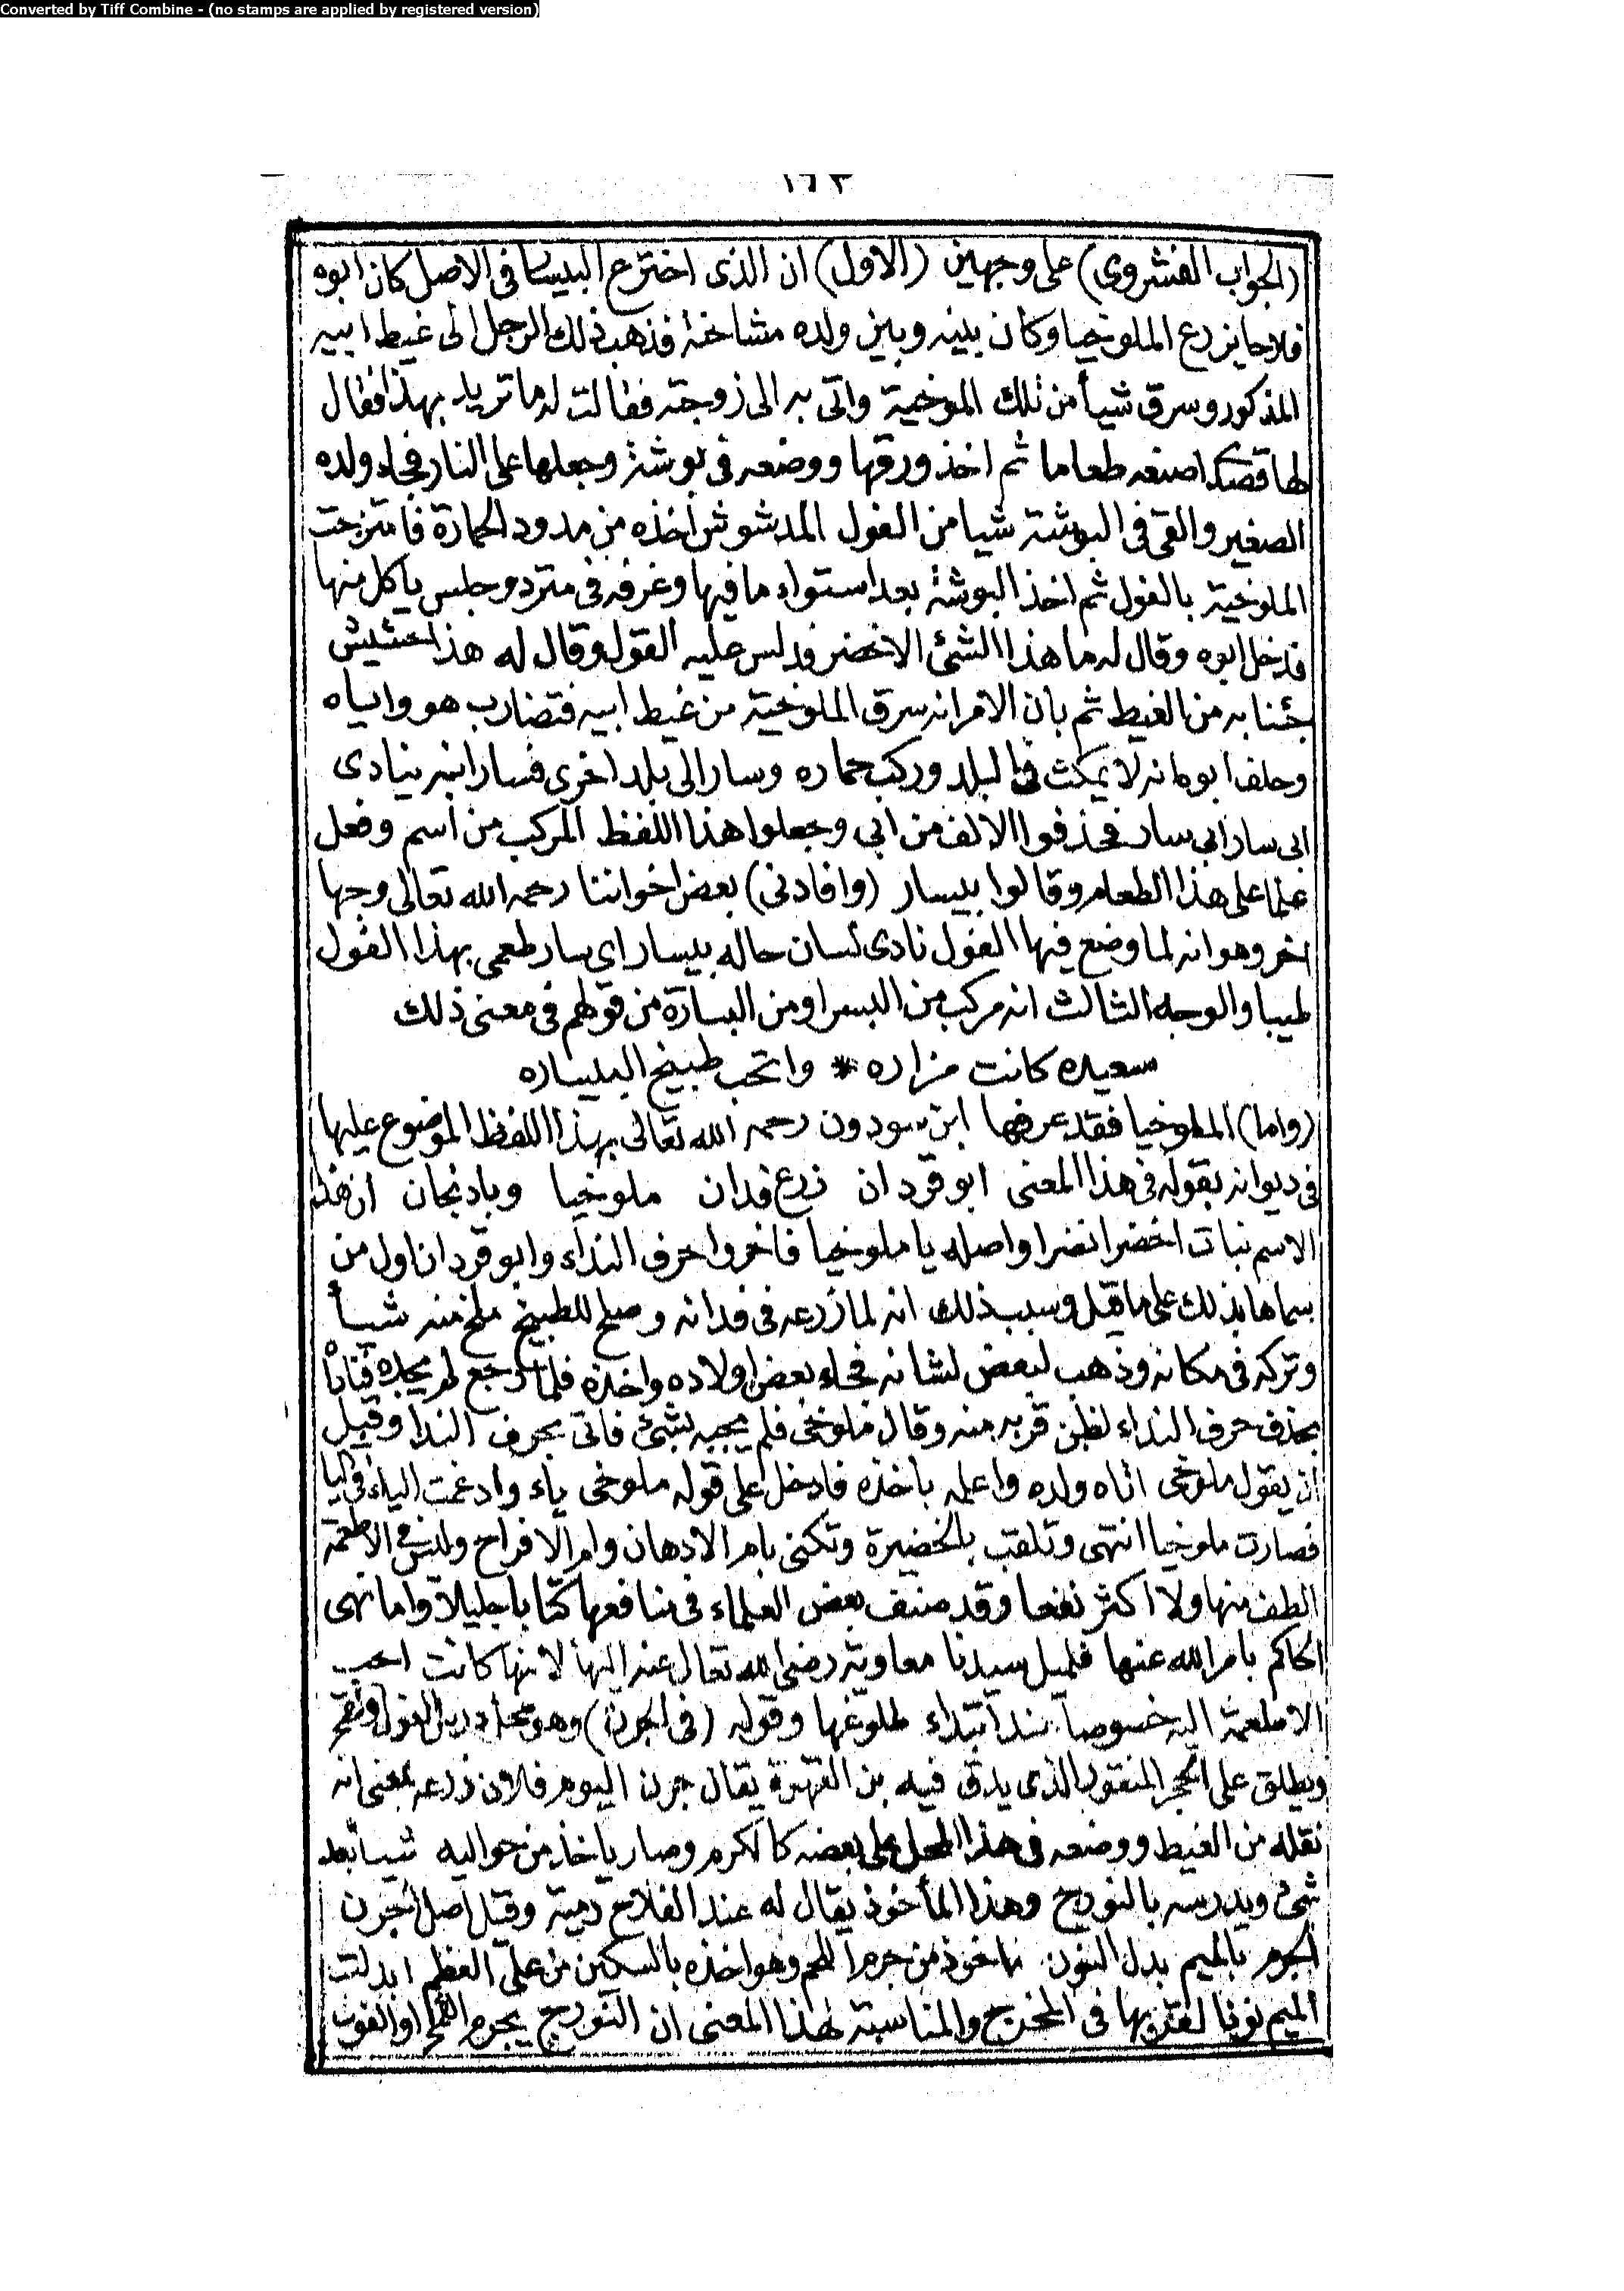 Converted by Tiff Combine - (no stamps are applied by registered version)
١٦٣
(الجواب الفشروى) على وجهين (الاول) ان الذى اخترع البيسار فى الاصل كان ابوه
فلاحا يزرع الملوخيا وكان بينه وبين ولده مشاخنة فذهب ذلك الرجل الى غيط ابيه
المذكور وسرق شيأ من تلك الملوخية واتى به الى زوجته فقالت له ما تريد بهذا فقال
لها قصدى اصنعه طعاما ثم اخذ ورقها ووضعه فى بوشة وجعلها على النار فجاء ولده
الصغير والقى فى البوشة شيا من الفول المدشوش اخذه من مدود الحمارة فامتزجت
الملوخية بالفول ثم اخذ البوشة بعد استواء ما فيها وغرفه فى مترد وجلس ياكل منها
فدخل ابوه وقال له ما هذا الشئ الاخضر فدلس عليه القول وقال له هذا حشيش
جئنا به من الغيط ثم بان الامر انه سرق الملوخية من غيط ابيه فتضارب هو واياه
وحلف ابوه انه لا يمكث فى البلد وركب حماره وسار الى بلد اخرى فسار ابنه ينادى
ابى سار ابى سار فحذفوا الالف من ابى وجعلوا هذا اللفظ المركب من اسم وفعل
علما على هذا الطعام وقالوا بيسار (وافادنى) بعض اخواننا رحمه الله تعالى وجها
اخر وهو انه لما وضع فيها الفول نادى لسان حاله بيسار اى سار طعمى بهذا الفول
طيبا والوجه الثالث انه مركب من اليسر او من البسارة من قولهم فى معنى ذلك
سعيده كانت مزاره * واتحب طبيخ البيساره
(واما) الملوخيا فقد عرضها ابن سودون رحمه الله تعالى بهذا اللفظ الموضوع عليها
فى ديوانه بقوله فى هذا المعنى ابو قردان زرع فدان ملوخيا وبادنجان ان هذا
الاسم نبات اخضر انضر واصله يا ملوخيا فاخروا حرف النداء وابو قردان اول من
سماها بذلك على ما قيل وسبب ذلك انه لما زرعه فى فدانه وصلح للطبيخ ملخ منه شيأ
وتركه فى مكانه وذهب لبعض لشانه فجاء بعض اولاده واخذه فلما رجع لم يجده فنادا
بحذف حرف النداء لظن قربه منه وقال ملوخى فلم يجبه بشئ فاتى بحرف الندا وقبل
ان يقول ملوخى اتاه ولده واعلمه باخذه فادخل على قوله ملوخى ياء وادغمت الياء فى اليا
فصارت ملوخيا انتهى وتلقب بالخضيرة وتكنى بام الادهان وام الافراح وليس فى الاطعمة
الطف منها ولا اكثر نفعا وقد صنف بعض العلماء فى منافعها كتابا جليلا واما نهى
الحاكم بامر الله عنها فلميل سيدنا معاوية رضى الله تعالى عنه اليها لانها كانت احب
الاطعمة اليه خصوصا عند ابتداء طلوعها وقوله (فى الجرن) وهو محل دريس الفول والقمح
ويطلق على الحجر المنقور الذى يدق فيه بن القهوة يقال جرن اليوم فلان زرعه بمعنى انه
نقله من الغيط ووضعه فى هذا المحل على بعضه كالكرم وصار ياخذ من حواليه شيأ بعد
شئ ويدرسه بالنورج وهذا المأخوذ يقال له عند الفلاح رمية وقيل اصل الجرن
الجرم بالميم بدل النون ماخوذ من جرم اللحم وهو اخذه بالسكين من على العظم ابدلت
الميم نونا لقربها فى المخرج والمناسبة لهذا المعنى ان النورج يجرم القمح او الفول